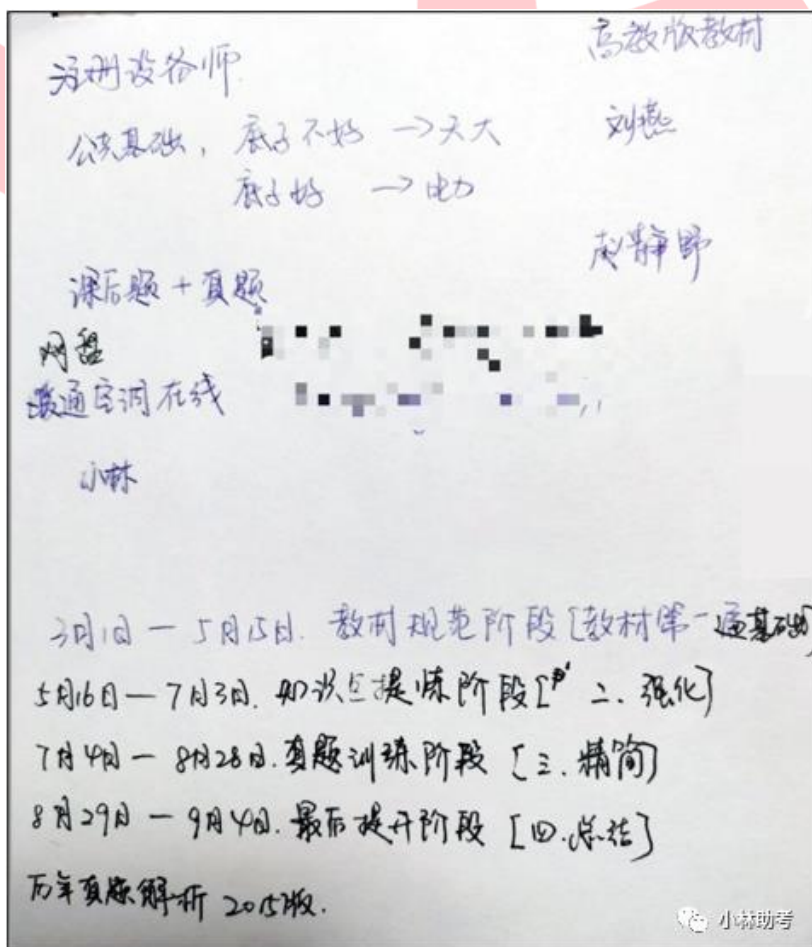 高教版教材
注册设备师
公共基础，底子不好 →天大
刘燕
底子好 →电力
赵静野
课后题 + 真题
网盘
暖通空调在线
小林
3月1日 — 5月15日. 教材规范阶段 [教材第一遍基础]
5月16日 — 7月3日. 知识点提炼阶段 [ 二. 强化]
7月4日 — 8月28日. 真题训练阶段 [三. 精简]
8月29日 — 9月4日. 最后提升阶段 [四. 总结]
历年真题解析 2015版.
小林助考